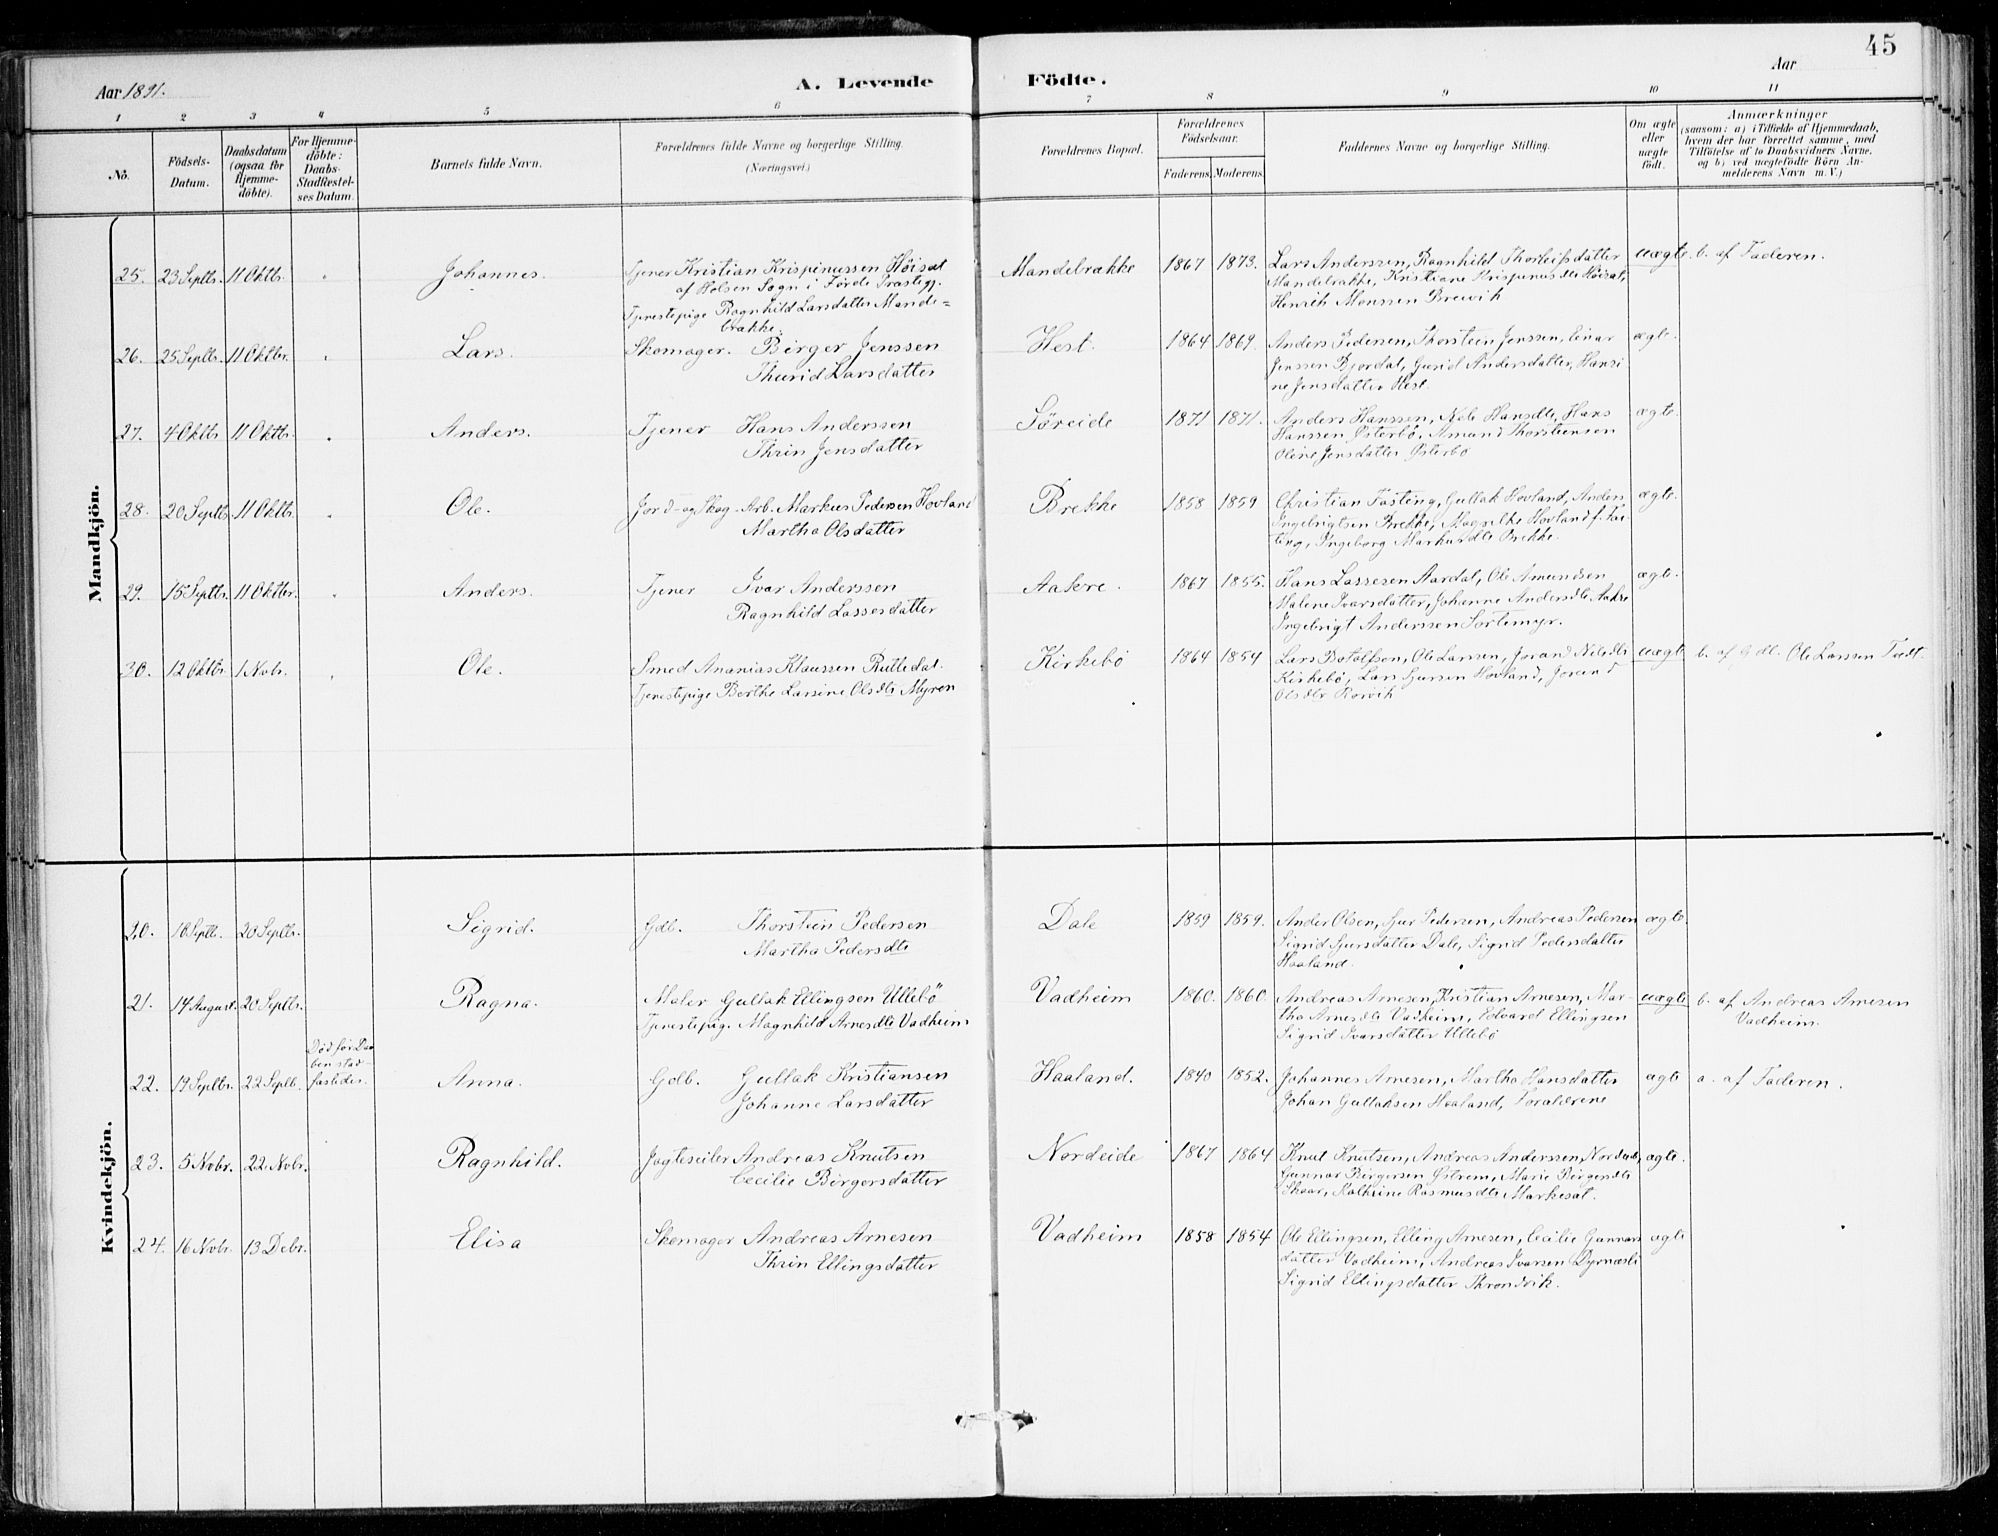 45
Aar 1891.
A. Levende Födte.
Aar
1 2 3 4 5 6 7 8 9 10 11
No.
Födsels-Datum.
Daabsdatum (ogsaa for Hjemme-döbte).
For Hjemme-döbte: Daabs-Stadfæstel-ses Datum.
Barnets fulde Navn.
Forældrenes fulde Navne og borgerlige Stilling. (Næringsvei.)
Forældrenes Bopæl.
Forældrenes Födselsaar.
Faderens. Moderens.
Faddernes Navne og borgerlige Stilling.
Om ægte eller uægte födt.
Anmærkninger
(saasom: a) i Tilfælde af Hjemmedaab,
hvem der har forrettet samme, med
Tilföielse af to Daabsvidners Navne,
og b) ved uægtefödte Börn An-
melderens Navn m. V.)
Mandkjön.
25. 23 Septbr. 11 Oktbr. " Johannes. Tjener Kristian Krispinussen Höisæt
af Holsen Sogn i Förde Præstegj.
Tjenestepige Ragnhild Larsdatter Mande-
brække.
Mandebrække 1867 1873. Lars Anderssen, Ragnhild Thorleifsdatter
Mandebrække, Kristiane Krispinusdtr Höisæt,
Henrik Monssen Brewik
uægte b. af Faderen.
26. 25 Septbr. 11 Oktbr. " Lars. Skomager. Birger Jenssen
Thurid Larsdatter
Hest. 1864 1869. Anders Pedersen, Thorstein Jenssen, Einar
Jenssen Bjordal, Gurid Andersdatter, Hansi-
ne Jensdatter Hest.
ægte.
27. 4 Oktbr. 11 Oktbr. " Anders. Tjener Hans Anderssen
Thrin Jensdatter
Søreide 1871 1871. Anders Hanssen, Nele Hansdtr, Hans
Hanssen Österbö, Amund Thorsteinsen
Oline Jensdatter Österbö
ægte.
28. 20 Septbr. 11 Oktbr. " Ole. Jord- og Skog-Arb. Markus Pedersen Hovland
Martha Olsdatter
Brekke 1858 1859 Christian Fasting, Gullak Hovland, Anders
Ingebrigtsen Brekke, Magnilde Hovland f. Fas-
ting, Ingeborg Markusdtr Brekke.
ægte.
29. 15 Septbr. 11 Oktbr. " Anders. Tjener Ivar Anderssen
Ragnhild Lassesdatter
Aakre. 1867 1855. Hans Lassesen Aardal, Ole Amundsen
Malene Ivarsdatter, Johanne Andersdtr Aakre
Ingebrigt Anderssen Sortemyr.
ægte.
30. 12 Oktbr. 1 Nvbr. " Ole. Smed Ananias Klaussen Rutledal.
Tjenestepige Berthe Larsine Olsdtr Myren
Kirkebö 1864 1854 Lars Botolfsen, Ole Larsen, Jorand Nilsdtr
Kirkebö, Lars Gursen Hovland, Jorand
Olsdtr Rorvik
uægte b. af Gdb. Ole Larssen Tvedt.
Kvindekjön.
20. 16 Septb. 20 Septb. Sigrid. Gdb. Thorstein Pedersen
Martha Pedersdtr
Dale 1859 1859. Ander Olsen, Gur Pedersen, Andreas Pedersen
Sigrid Gursdatter Dale, Sigrid Pedersdatter
Haaland.
ægte.
21. 14 August. 20 Septbr. Ragna. Maler Gullak Ellingsen Ullebö
Tjenestepige Magnhild Arnesdtr Vadheim
Vadheim 1860. 1860. Andreas Arnesen, Kristian Arnesen, Mar-
tha Arnesdtr Vadheim, Edvard Ellingsen
Sigrid Ivarsdatter Ullebö
uægte b. af Andreas Arnesen
Vadheim.
22. 19 Septbr. 22 Septb. Död för Daa-
ben stad-
fæstedes.
Anna. Gdb. Gullak Kristiansen
Johanne Larsdatter
Haaland. 1840 1852. Johannes Arnesen, Martha Hansdatter
Johan Gullaksen Haaland, Forældrene
ægte a. af Faderen.
23. 5 Nvbr. 22 Nvbr. Ragnhild. Jagteseiler Andreas Knutsen
Cecilie Birgersdatter
Nordeide 1867 1864 Knut Knutsen, Andreas Anderssen, Nordeide,
Gunnar Birgersen Östrem, Marie Birgersdtr
Skaar, Kathrine Rasmusdtr Markesæt.
ægte.
24. 16 Nvbr. 13 Debr. Elisa Skomager Andreas Arnesen
Thrin Ellingsdatter
Vadheim 1858 1854 Ole Ellingsen, Elling Arnesen, Cecilie Gunnars
datter Vadheim, Andreas Ivarsen Dyrnæsli
Sigrid Ellingsdatter Throndvik.
ægte